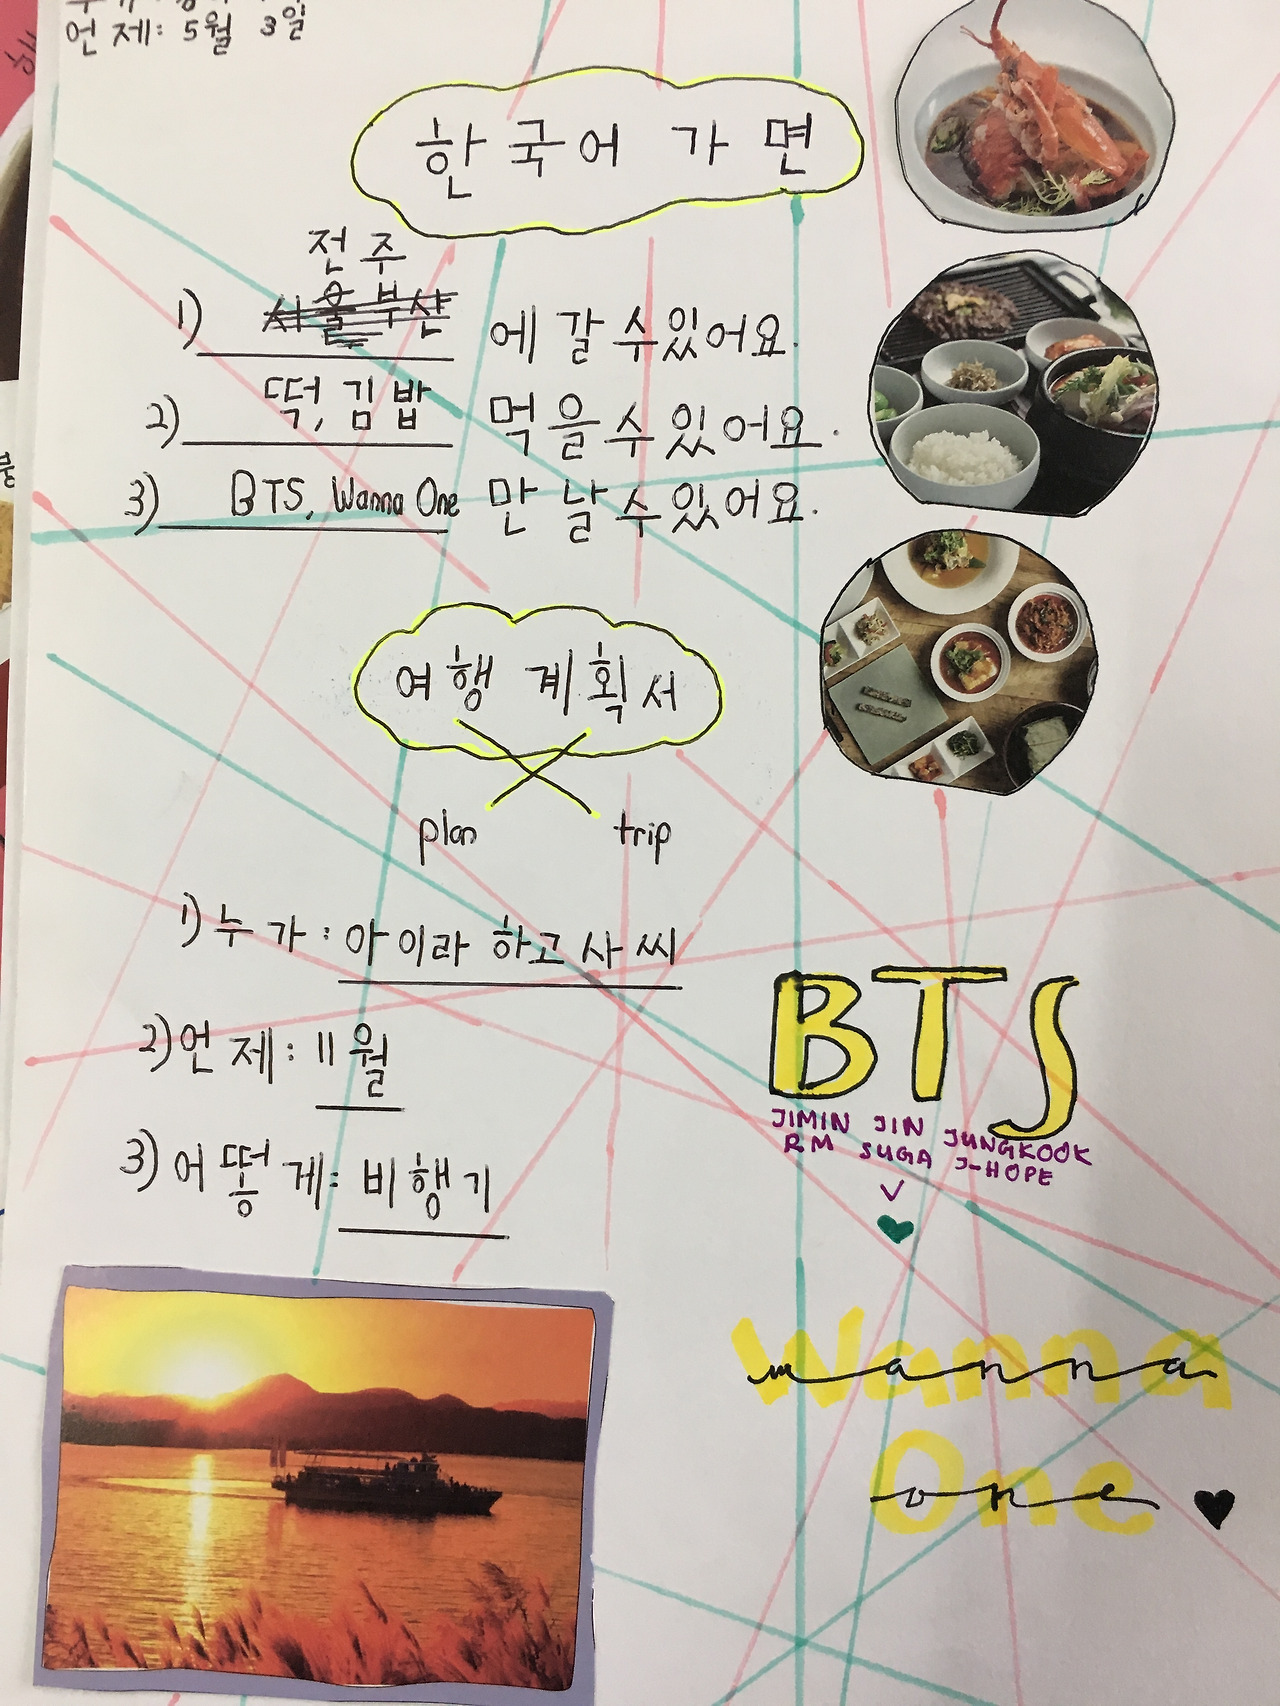 언제: 5월 3일
한국어 가면
전주
1) 서울 부산 에 갈 수 있어요.
2) 떡, 김밥 먹을 수 있어요.
3) BTS, Wanna One 만날 수 있어요.
여행 계획서
plan trip
1) 누가: 아이라 하고 사씨
2) 언제: 11월
3) 어떻게: 비행기
BTS
JIMIN JIN JUNGKOOK
RM SUGA J-HOPE
V
Wanna
wanna
One
one